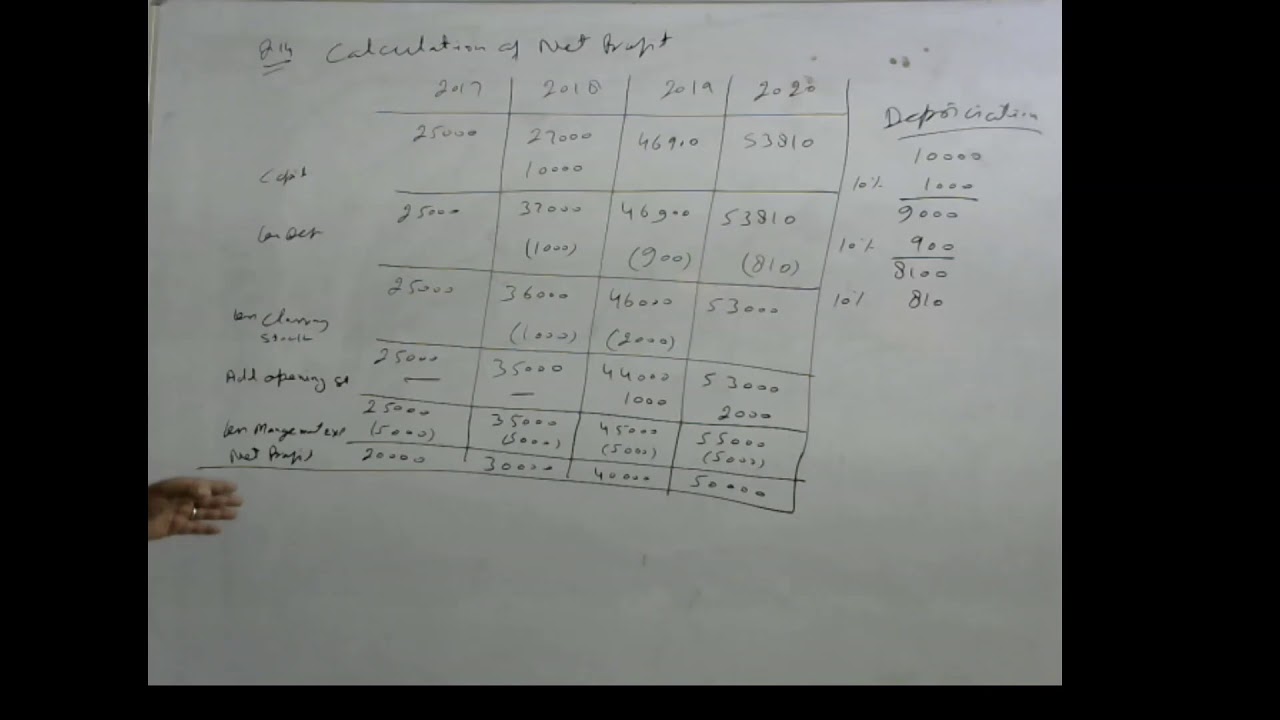 Q.14 Calculation of Net Profit
2017 2018 2019 2020
25000 27000 46900 53810
Capit 10000
25000 37000 46900 53810
Less Dep (1000) (900) (810)
25000 36000 46000 53000
Less Closing Stock (1000) (2000)
25000 35000 44000 53000
Add opening st — — 1000 2000
25000 35000 45000 55000
Less Management exp (5000) (5000) (5000) (5000)
Net Profit 20000 30000 40000 50000
Depriciation
10000
10% 1000
9000
10% 900
8100
10% 810